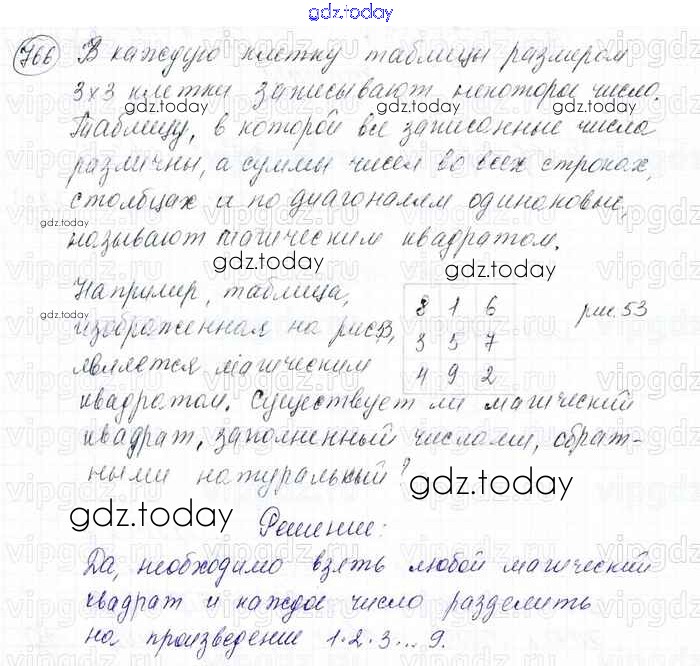 gdz.today
766 В каждую клетку таблицы размером
3×3 клетки записывают некоторое число.
gdz.today gdz.today
Таблицу, в которой все записанные числа
различны, а суммы чисел во всех строках,
столбцах и по диагоналям одинаковые,
gdz.today
называют магическим квадратом.
gdz.today gdz.today
Например, таблица, 8 1 6 рис. 53
изображенная на рис53, 3 5 7
является магическим 4 9 2
gdz.today
квадратом. Существует ли магический
квадрат, заполненный числами, обрат-
ными натуральный?
gdz.today gdz.today
Решение:
Да, необходимо взять любой магический
квадрат и каждое число разделить
на произведение 1·2·3...9.
gdz.today gdz.today